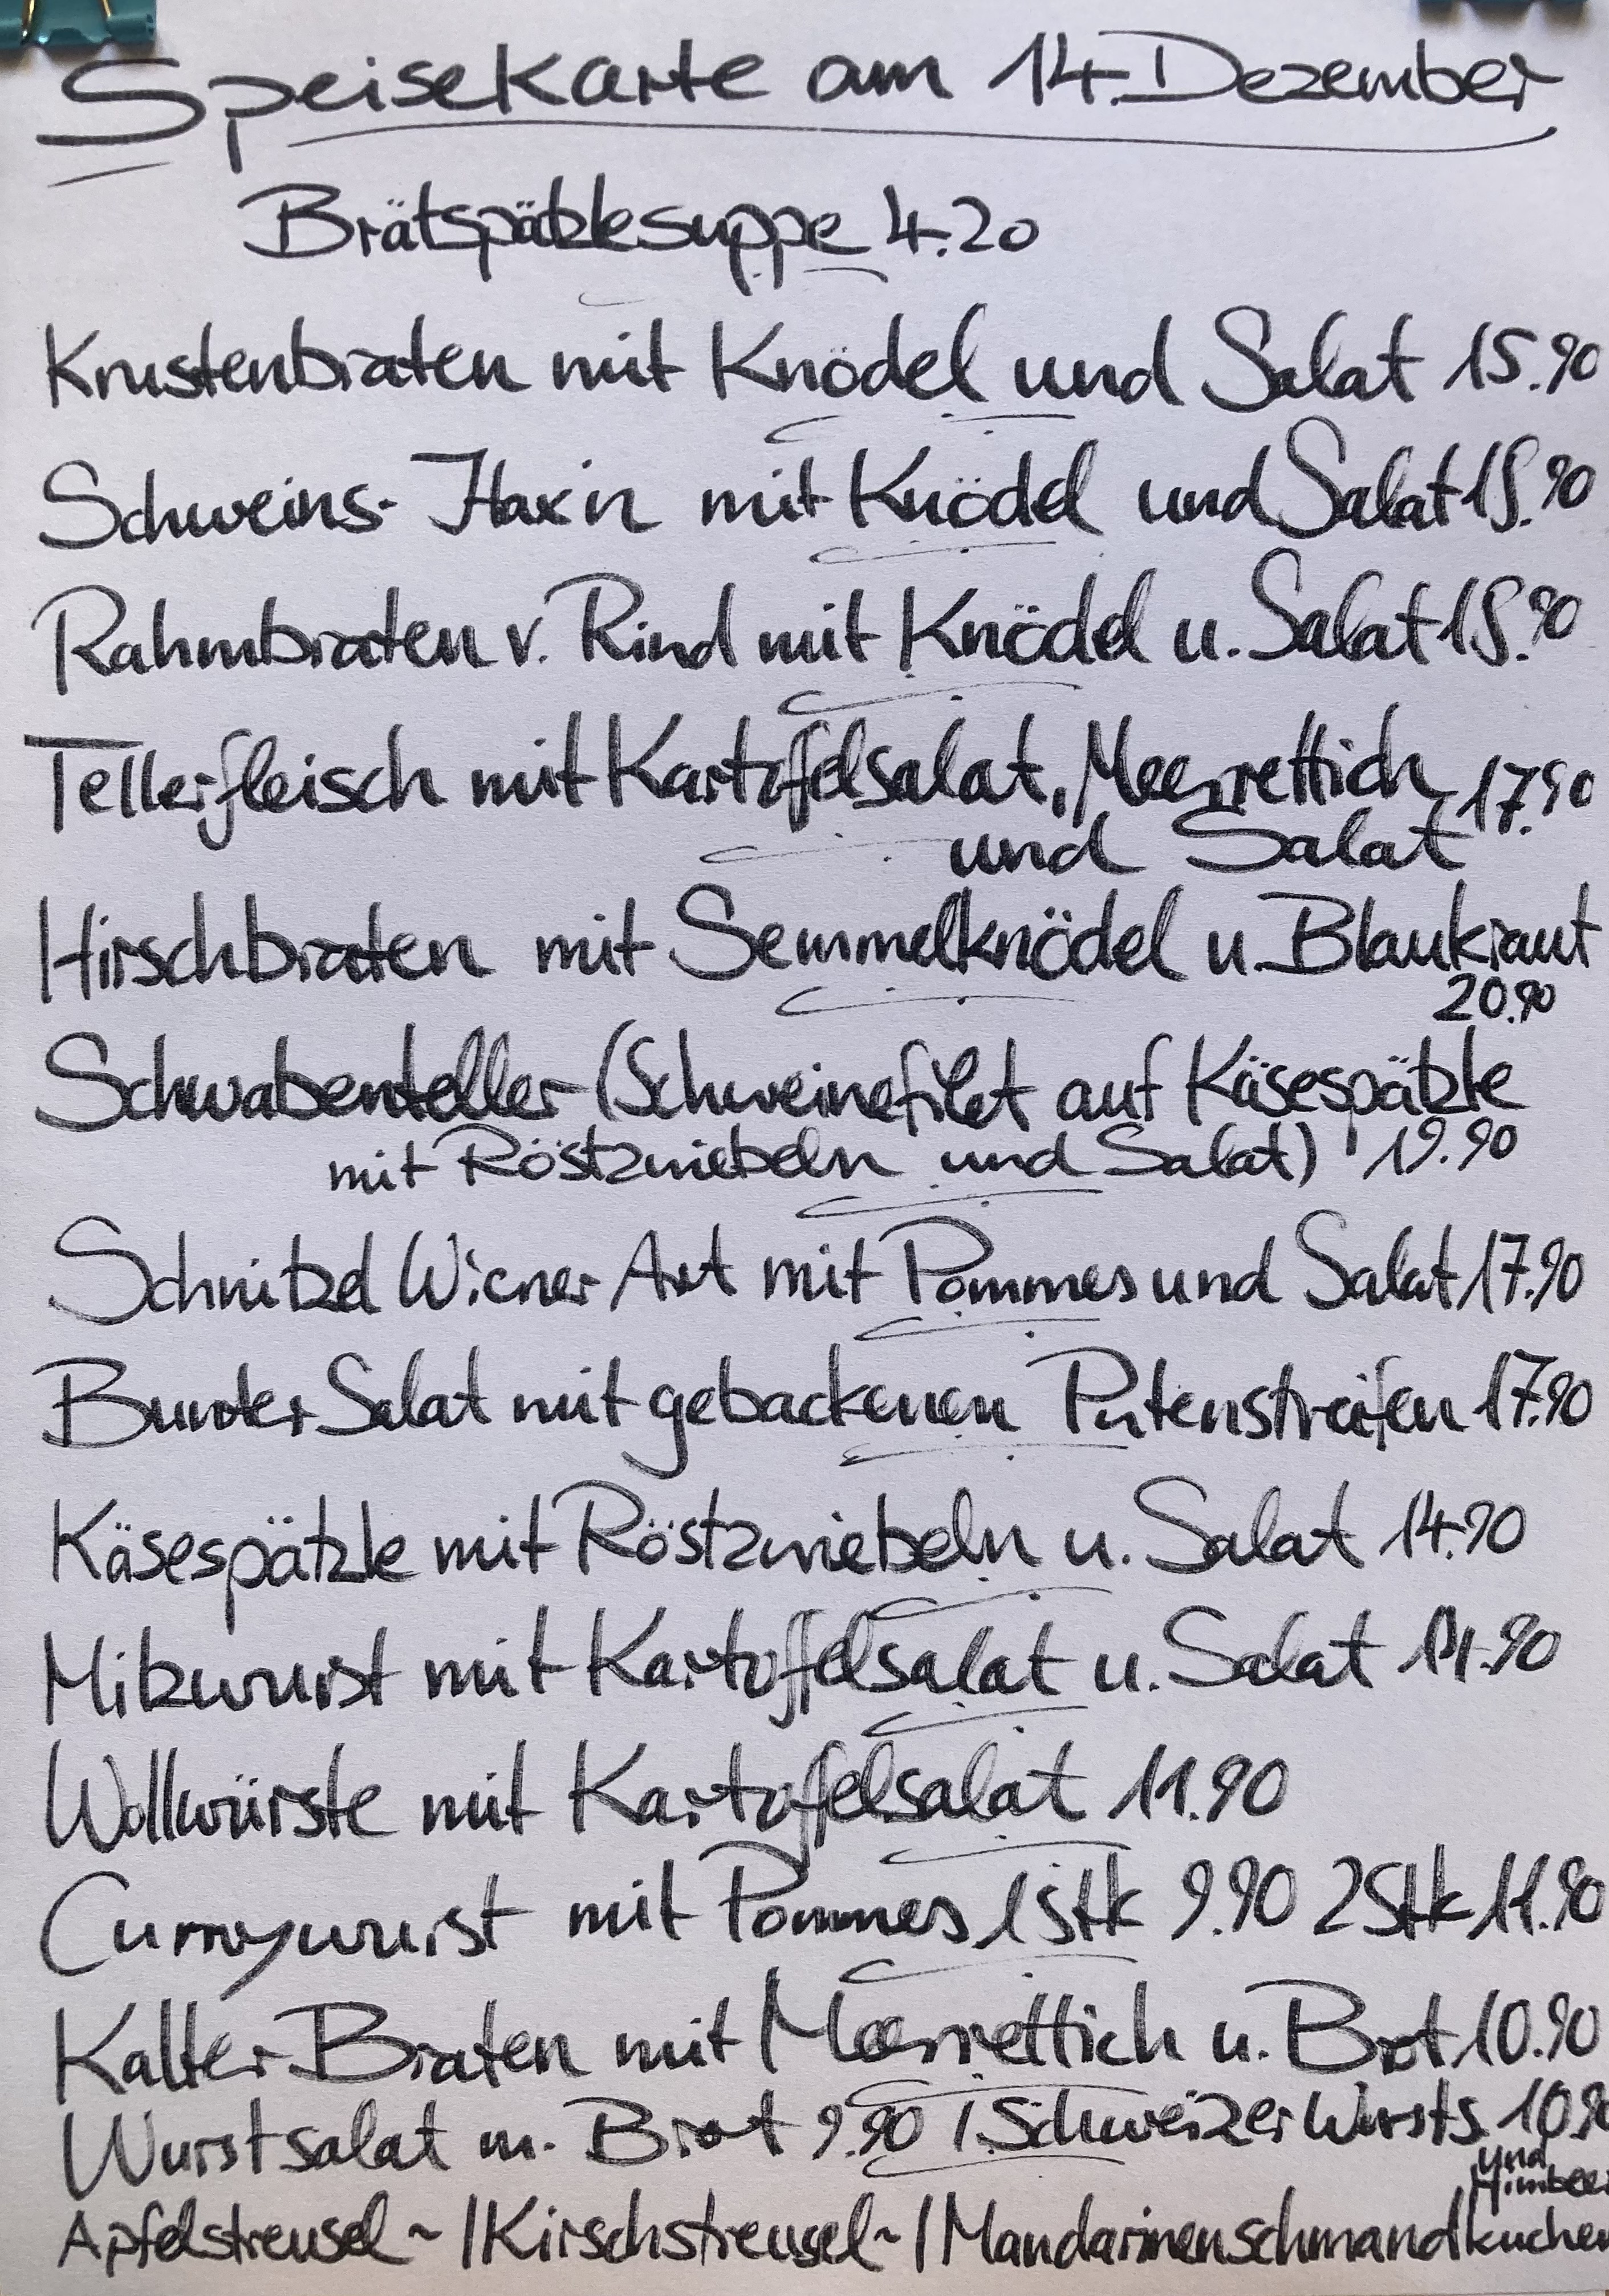 Speisekarte am 14. Dezember
Brätspätzlesuppe 4.20
Krustenbraten mit Knödel und Salat 15.90
Schweins-Hax'n mit Knödel und Salat 15.90
Rahmbraten v. Rind mit Knödel u. Salat 15.90
Tellerfleisch mit Kartoffelsalat, Meerrettich 17.90
und Salat
Hirschbraten mit Semmelknödel u. Blaukraut
20.90
Schwabenteller (Schweinefilet auf Käsespätzle
mit Röstzwiebeln und Salat) 19.90
Schnitzel Wiener Art mit Pommes und Salat 17.90
Bunter Salat mit gebackenen Putenstreifen 17.90
Käsespätzle mit Röstzwiebeln u. Salat 14.90
Milzwurst mit Kartoffelsalat u. Salat
Wollwürste mit Kartoffelsalat 11.90
Currywurst mit Pommes 1 Stk 9.90 2 Stk 11.90
Kalter Braten mit Meerrettich u. Brot 10.90
Wurstsalat m. Brot 9.90 / Schweizer Wursts. 10.90
und
Himbeer
Apfelstreusel~ / Kirschstreusel~ / Mandarinenschmandkuchen